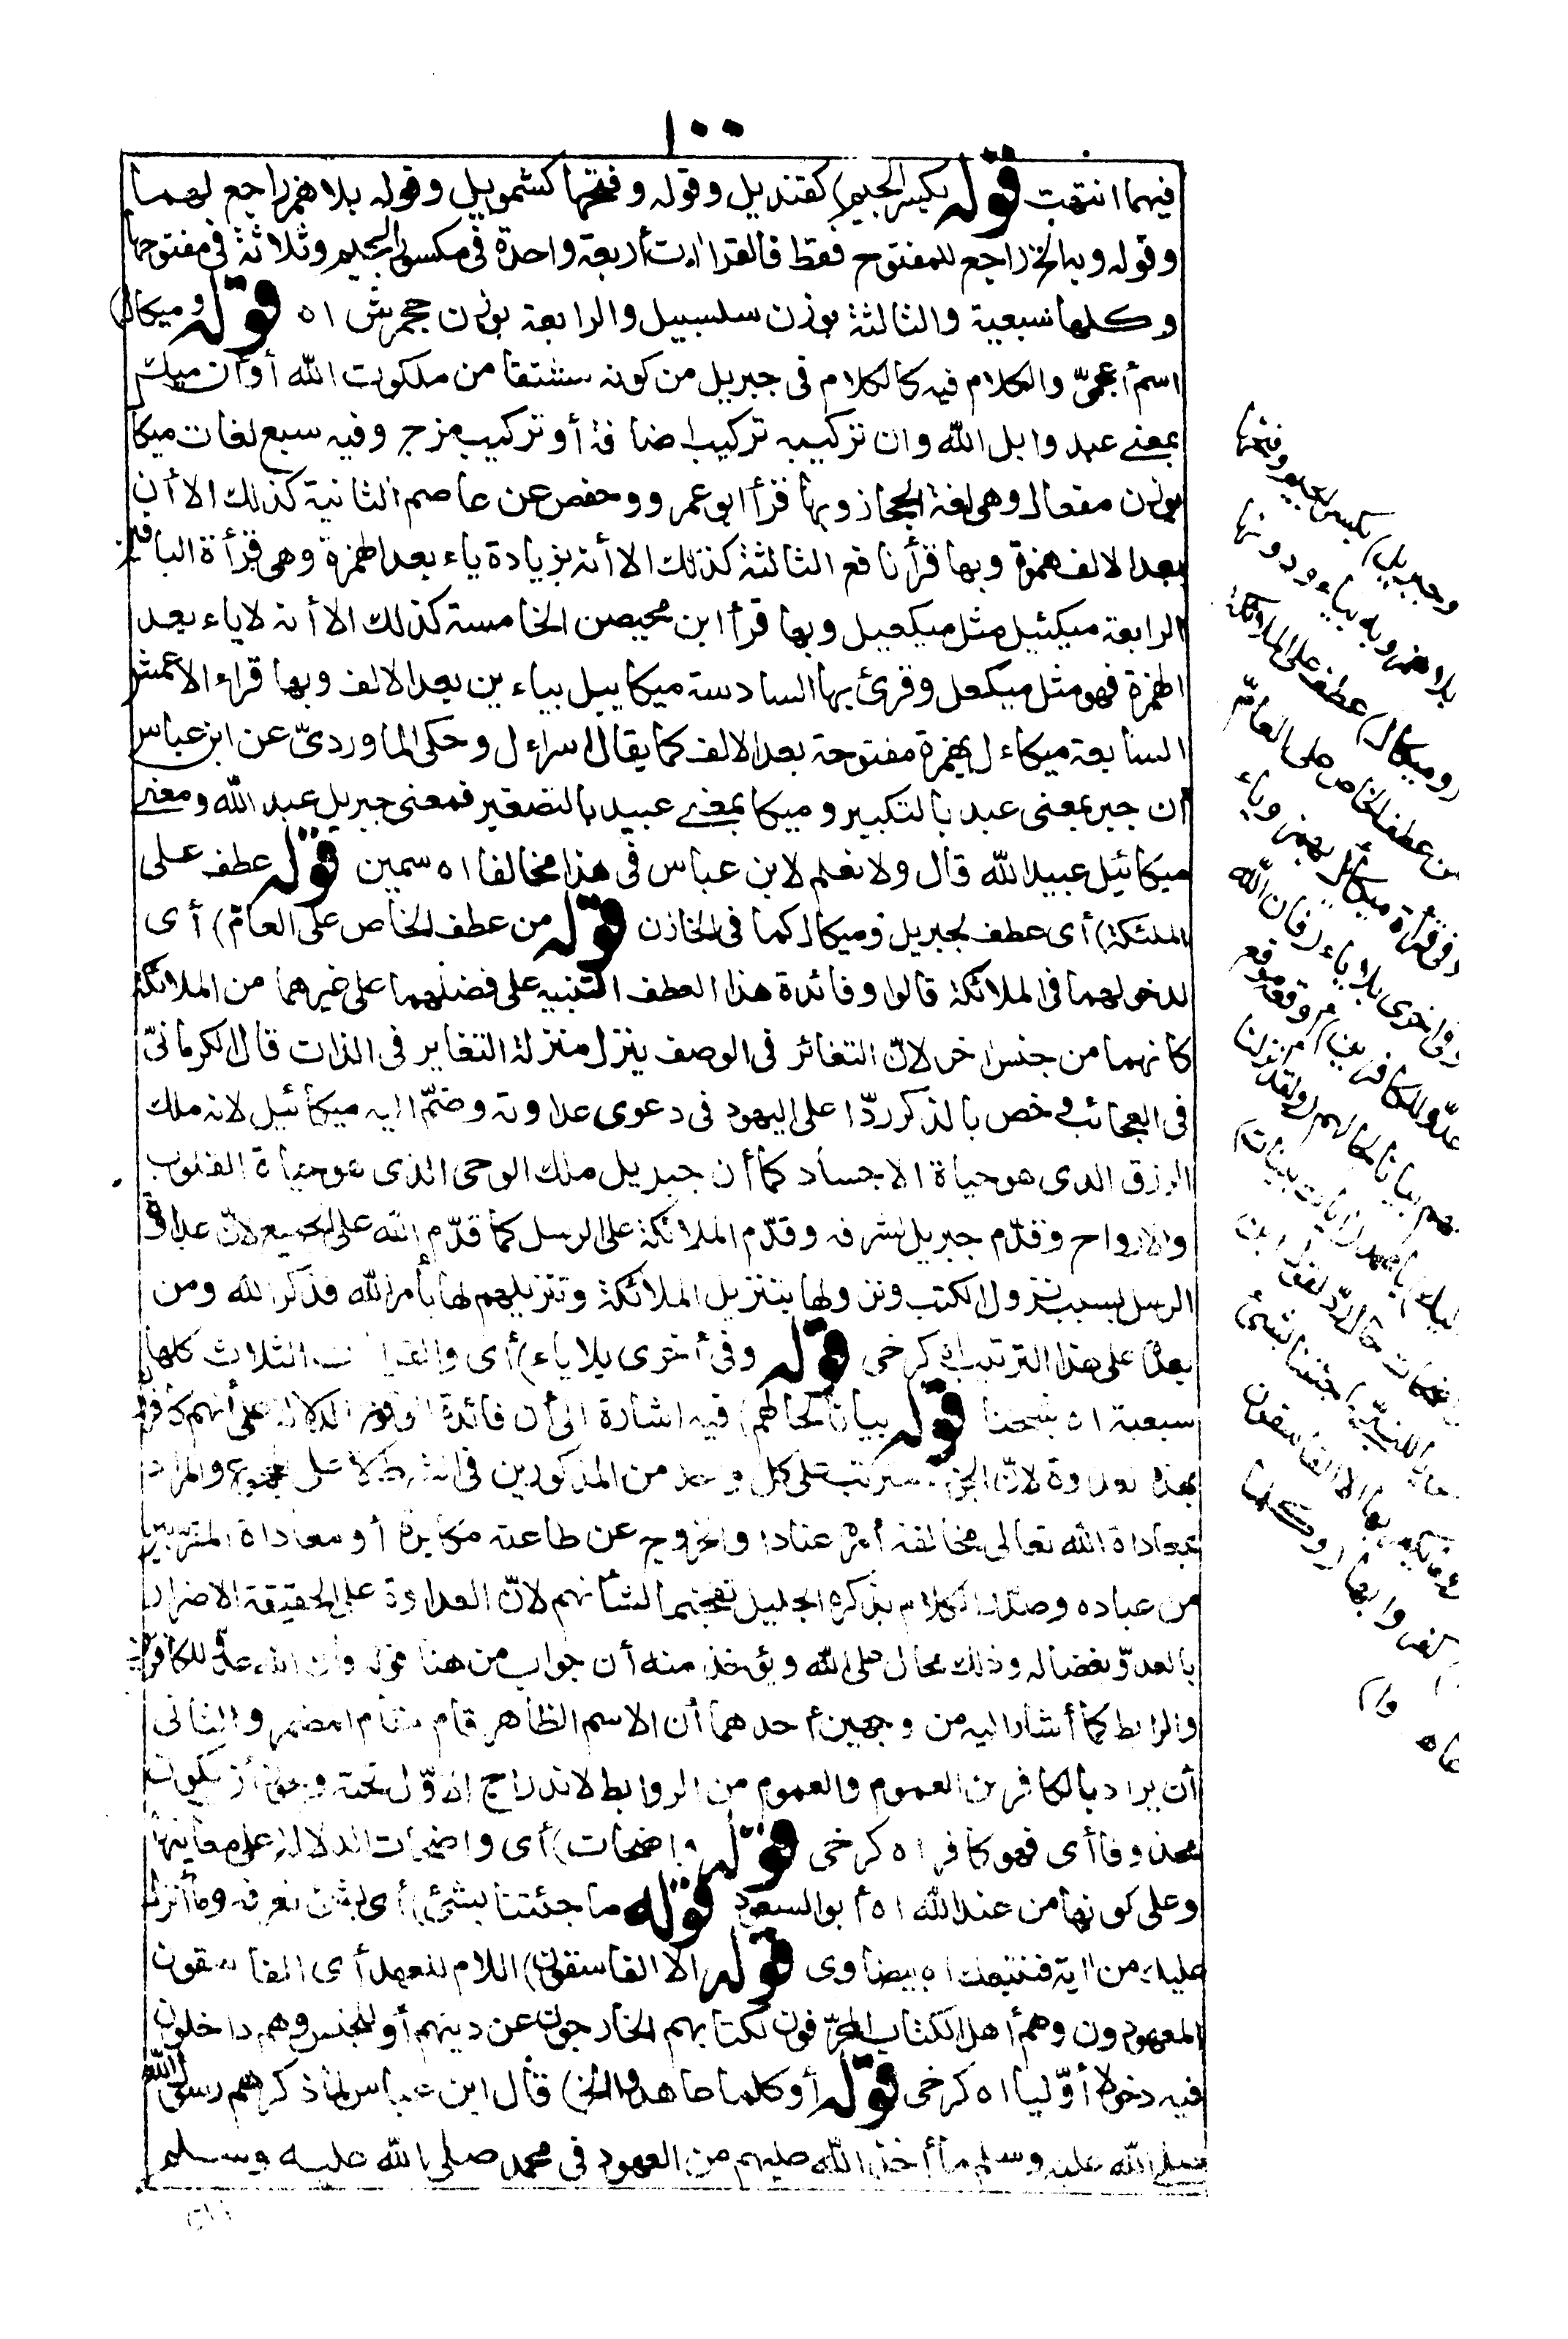 ١٠٠
فيهما انتهت قوله بكسر الجيم) كقنديل وقوله وفتحها كشمويل وقوله بلا همز راجع لهما
وقوله وبه الخ راجع للمفتوح فقط فالقراءت أربعة واحدة في مكسور الجيم وثلاثة في مفتوحها
وكلها سبعية والثالثة بوزن سلسبيل والرابعة بوزن جحمرش اه قوله وميكال)
اسم أعجميّ والكلام فيه كالكلام في جبريل من كونه مشتقا من ملكوت الله أو أن ميك
بمعنى عبد وايل الله وان تركيبه تركيب اضافة أو تركيب مزج وفيه سبع لغات ميكا
بوزن مفعال وهي لغة الحجاز وبها قرأ ابو عمرو وحفص عن عاصم الثانية كذلك الا أن
بعد الالف همزة وبها قرأ نافع الثالثة كذلك الا أنه بزيادة ياء بعد الهمزة وهي قرأة الباقين
الرابعة ميكئيل مثل ميكعيل وبها قرأ ابن محيصن الخامسة كذلك الا أنه لاياء بعد
الهمزة فهو مثل ميكعل وقرئ بها السادسة ميكاييل بياءين بعد الالف وبها قراء الاعمش
السابعة ميكاءل بهمزة مفتوحة بعد الالف كما يقال اسراءل وحكى الماورديّ عن ابن عباس
أن جبر بمعنى عبد بالتكبير وميكا بمعنى عبيد بالتصغير فمعنى جبريل عبد الله ومعنى
ميكائيل عبيد الله قال ولا نعلم لابن عباس في هذا مخالفا اه سمين قوله عطف على
الملئكة) أى عطف لجبريل وميكال كما في الخازن قوله من عطف الخاص على العامّ) أى
لدخولهما في الملائكة قالوا وفائدة هذا العطف التنبيه على فضلهما على غيرهما من الملائكة
كانهما من جنس اخر لانّ التغائر في الوصف ينزل منزلة التغاير في الذات قال الكرمانيّ
في العجائب وخص بالذكر ردّا على اليهود في دعوى عداوته وضمّ اليه ميكائيل لانه ملك
الرزق الذى هو حياة الاجساد كما أن جبريل ملك الوحى الذى هو حياة القلوب
والارواح وقدّم جبريل لشرفه وقدّم الملائكة على الرسل كما قدّم الله على الجميع لانّ عداوة
الرسل بسبب نزول الكتب ونزولها بتنزيل الملائكة وتنزيلهم لها بأمر الله فذكر الله ومن
بعده على هذا الترتيب اه كرخى قوله وفى أخرى بلا ياء) أى والقراات الثلاث كلها
سبعية اه شيخنا قوله بيانا لحالهم) فيه اشارة الى أن فائدة الدلالة على أنهم كافرو
بهذه العداوة لانّ الجزاء مترتب على كل وحد من المذكورين في الشرط لا على المجموع والمراد
بمعاداة الله تعالى مخالفة أمره عنادا والخروج عن طاعته مكابرة أو معاداة المقربين
من عباده وصدّر الكلام بذكره الجليل تفخيما لشأنهم لانّ العداوة على الحقيقة الاضرار
بالعدوّ بغضا له وذلك محال على الله ويؤخذ منه أن جواب من هنا قوله وان الله عدوّ للكافرين
والرابط كما أشار اليه من وجهين أحدهما أن الاسم الظاهر قام مقام المضمر والثانى
أن يراد بالكافرين العموم والعموم من الروابط لاندراج الاوّل تحته ويجوز أن يكون
محذوفا أى فهو كافر اه كرخى قوله واضحات) أى واضحات الدلالة على معانيها
وعلى كونها من عند الله اه أبو السعود قوله ما جئتنا بشئ) أى بشئ نعرفه وما أنزل
عليك من اية فنتبعك اه بيضاوى قوله الا الفاسقون) اللام للعهد أى الفاسقون
المعهودون وهم أهل الكتاب المحرّفون لكتابهم الخارجون عن دينهم أو للجنس وهم داخلون
فيه دخولا أوّليا اه كرخى قوله أوكلما عاهدوا الخ) قال ابن عباس لما ذكرهم رسول الله
صلى الله عليه وسلم ما أخذ الله عليهم من العهود في محمد صلى الله عليه وسلم
وجبريل) بكسر الجيم وفتحها
بلا همز وبه بياء ودونها
وميكال) عطف على الملائكة
من عطف الخاص على العامّ
وفى قرأة ميكائيل بهمز وياء
وفى اخرى بلا ياء (فان الله
عدوّ للكافرين) أوقعه موقع
لهم بيانا لحالهم (ولقد أنزلنا
اليك) يا محمد (ايات بينات)
واضحات حال ردّ لقول ابن
للنبيّ ما جئتنا بشئ
(وما يكفر بها الا الفاسقون
كفروا بها (أوكلما